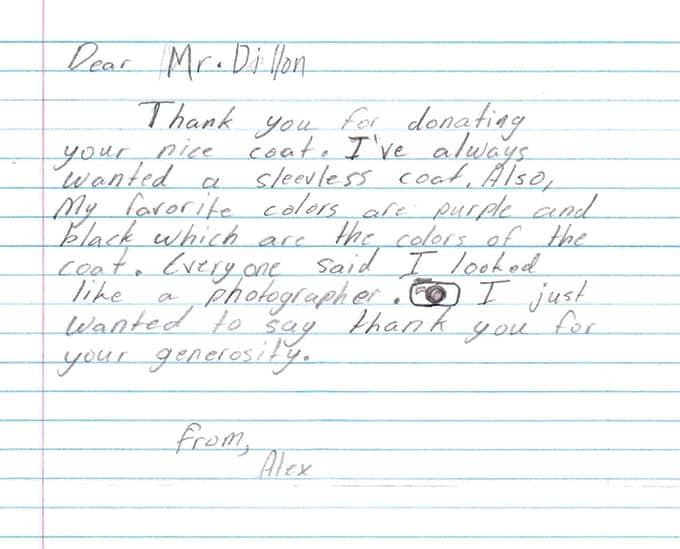 Dear Mr. Dillon
Thank you for donating
your nice coat. I've always
wanted a sleevless coat. Also,
My favorite colors are purple and
black which are the colors of the
coat. Everyone said I looked
like a photographer. I just
wanted to say thank you for
your generosity.
From,
Alex